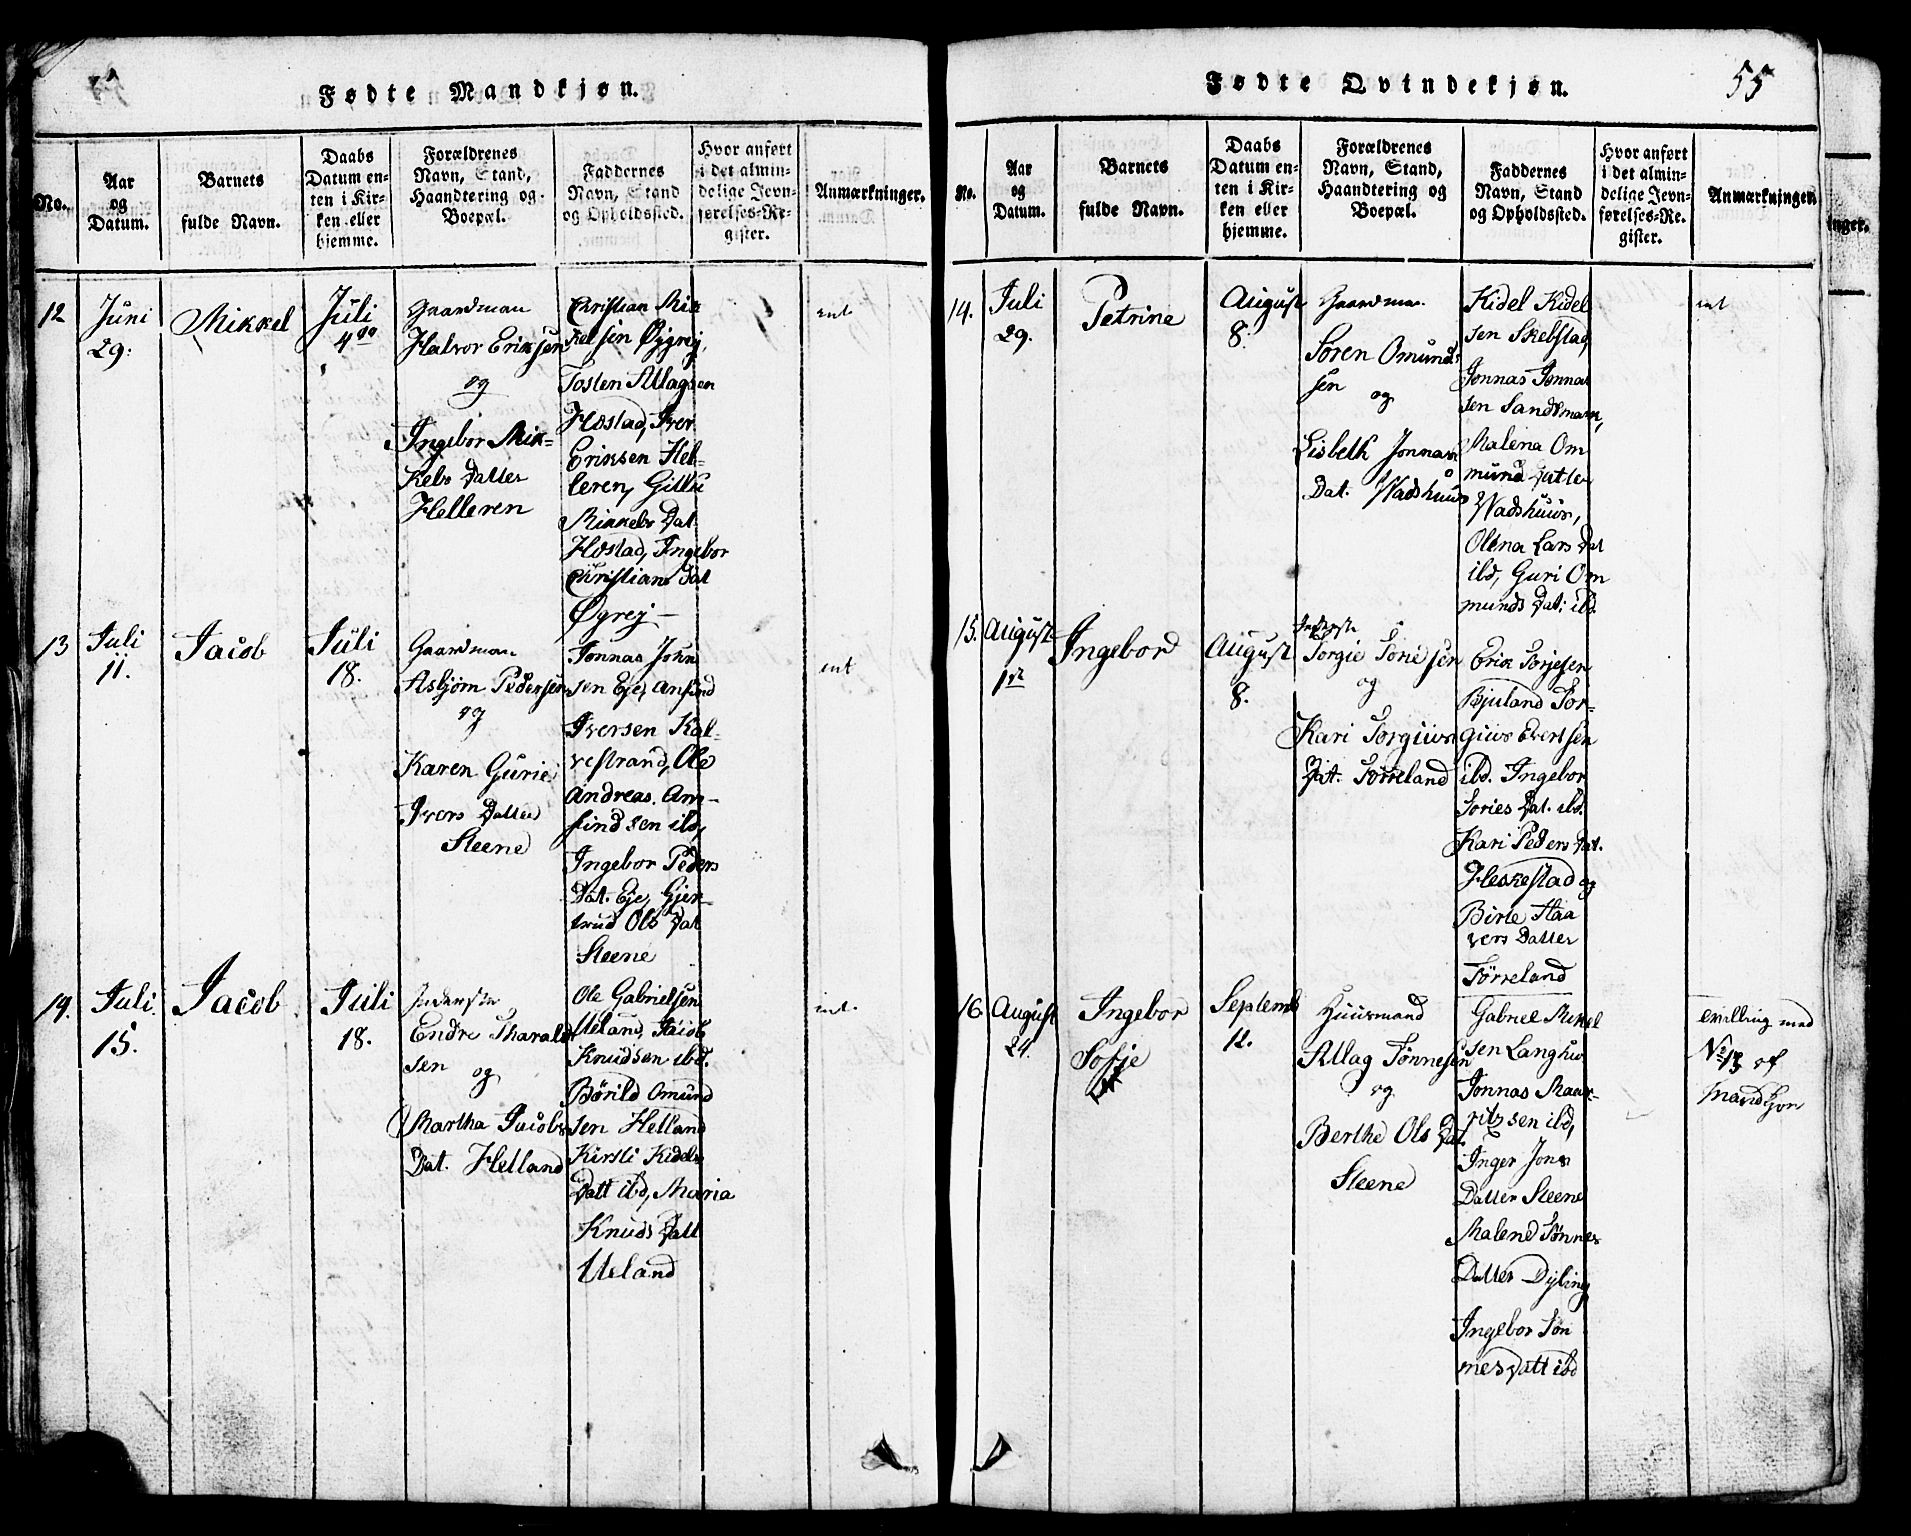 Fødte Mandkjøn.
No.
Aar
og
Datum.
Barnets
fulde Navn.
Daabs
Datum en-
ten i Kir-
ken eller
hjemme.
Forældrenes
Navn, Stand,
Haandtering og
Boepæl.
Faddernes
Navn, Stand
og Opholdssted.
Hvor anført
i det almin-
delige Jevn-
førelses-Re-
gister.
Anmærkninger.
12
Juni
29.
Mikkel
Juli
4de
Gaardman
Halvor Eriksen
og
Ingebor Mik-
kels Datter
Helleren
Christian Mik
kelsen Øygrej,
Tosten Allagsen
Hostad, Iver
Eriksen Hel-
leren,
Mikkels Dat.
Hostad, Ingebor
Christians Dat
Øgrej
ent
13
Juli
11.
Jacob
Juli
18.
Gaardman
Asbjørn Pedersen
og
Karen Gurie
Ivers Datter
Steene
Jonnas John
sen Eje, Anfind
Iversen Kal-
vestrand, Ole
Andreas An-
findsen ibd,
Ingebor Peders
Dat. Eje, Gjer-
trud Ols Dat
Steene
ent
14.
Juli
15.
Jacob
Juli
18.
Inderste
Endre Tharald
sen
og
Martha Jacobs
Dat. Helland
Ole Gabrielsen
Ueland, Jacob
Knudsen ibd.
Børild Omund
sen Helland
Kirsti Kidels
Datt ibd, Maria
Knuds Datt
Ueland
ent.
Fødte Qvindekjøn.
55
No.
Aar
og
Datum.
Barnets
fulde Navn.
Daabs
Datum en-
ten i Kir-
ken eller
hjemme.
Forældrenes
Navn, Stand,
Haandtering og
Boepæl.
Faddernes
Navn, Stand
og Opholdssted.
Hvor anført
i det almin-
delige Jevn-
førelses-Re-
gister.
Anmærkninger
inger.
14.
Juli
29.
Petrine
August
8.
Gaardman
Søren Omund-
sen
og
Lisbeth Jonnas
Dat. Wadshuus
Kidel Kidel
sen Skelstad,
Jonnas Jonnas
sen Sandsmark,
Malena Om
mund Datter
Wadshuus,
Olena Lars Dat
ibd, Guri Om
munds Dat: ibd.
ent
15.
August
1ste
Ingebor
August
8.
Inderste
Torgie Torie sen
og
Kari Torgius
Dat. Tørreland
Erik Torjesen
Bjuland Tor-
gius Evertsen
ibd. Ingebor
Tories Dat. ibd.
Kari Peders Dat.
Heskestad og
Birte Haa
vers Datter
Tørreland
16.
August
24.
Ingebor
Sofje
Septemb
12.
Huusmand
Allag Tønnesen
og
Berthe Ols Dat.
Steene
Gabriel Mikel
sen Langhus
Jonnas Maur-
ritzsen ibd,
Inger Jons
Datter Steene
Malene Tønnes
Datter Dybing
Ingebor Tøn
nes Datt ibd
Tvilling med
No 13 af
Mandkjøn